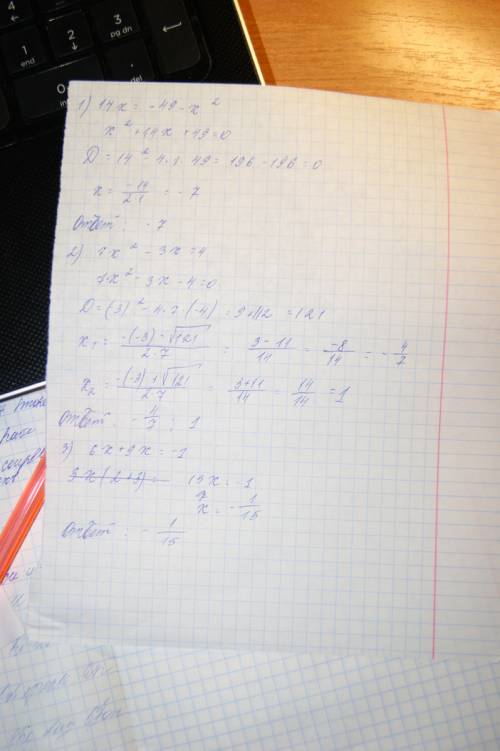 4
1
end
2
3
pg dn
0
ins
.
del
1) 14x = -49 - x²
x² + 14x + 49 = 0
D = 14² - 4·1·49 = 196 - 196 = 0
x = -14/2·1 = -7
Ответ: -7
2) 7x² - 3x = 4
7x² - 3x - 4 = 0
D = (3)² - 4·7·(-4) = 9+112 = 121
x₁ = -(-3) - √121/2·7 = 3-11/14 = -8/14 = -4/7
x₂ = -(-3) + √121/2·7 = 3+11/14 = 14/14 = 1
Ответ: -4/7; 1
3) 6x + 9x = -1
3x(2+3) = 15x = -1
x = -1/15
Ответ: -1/15